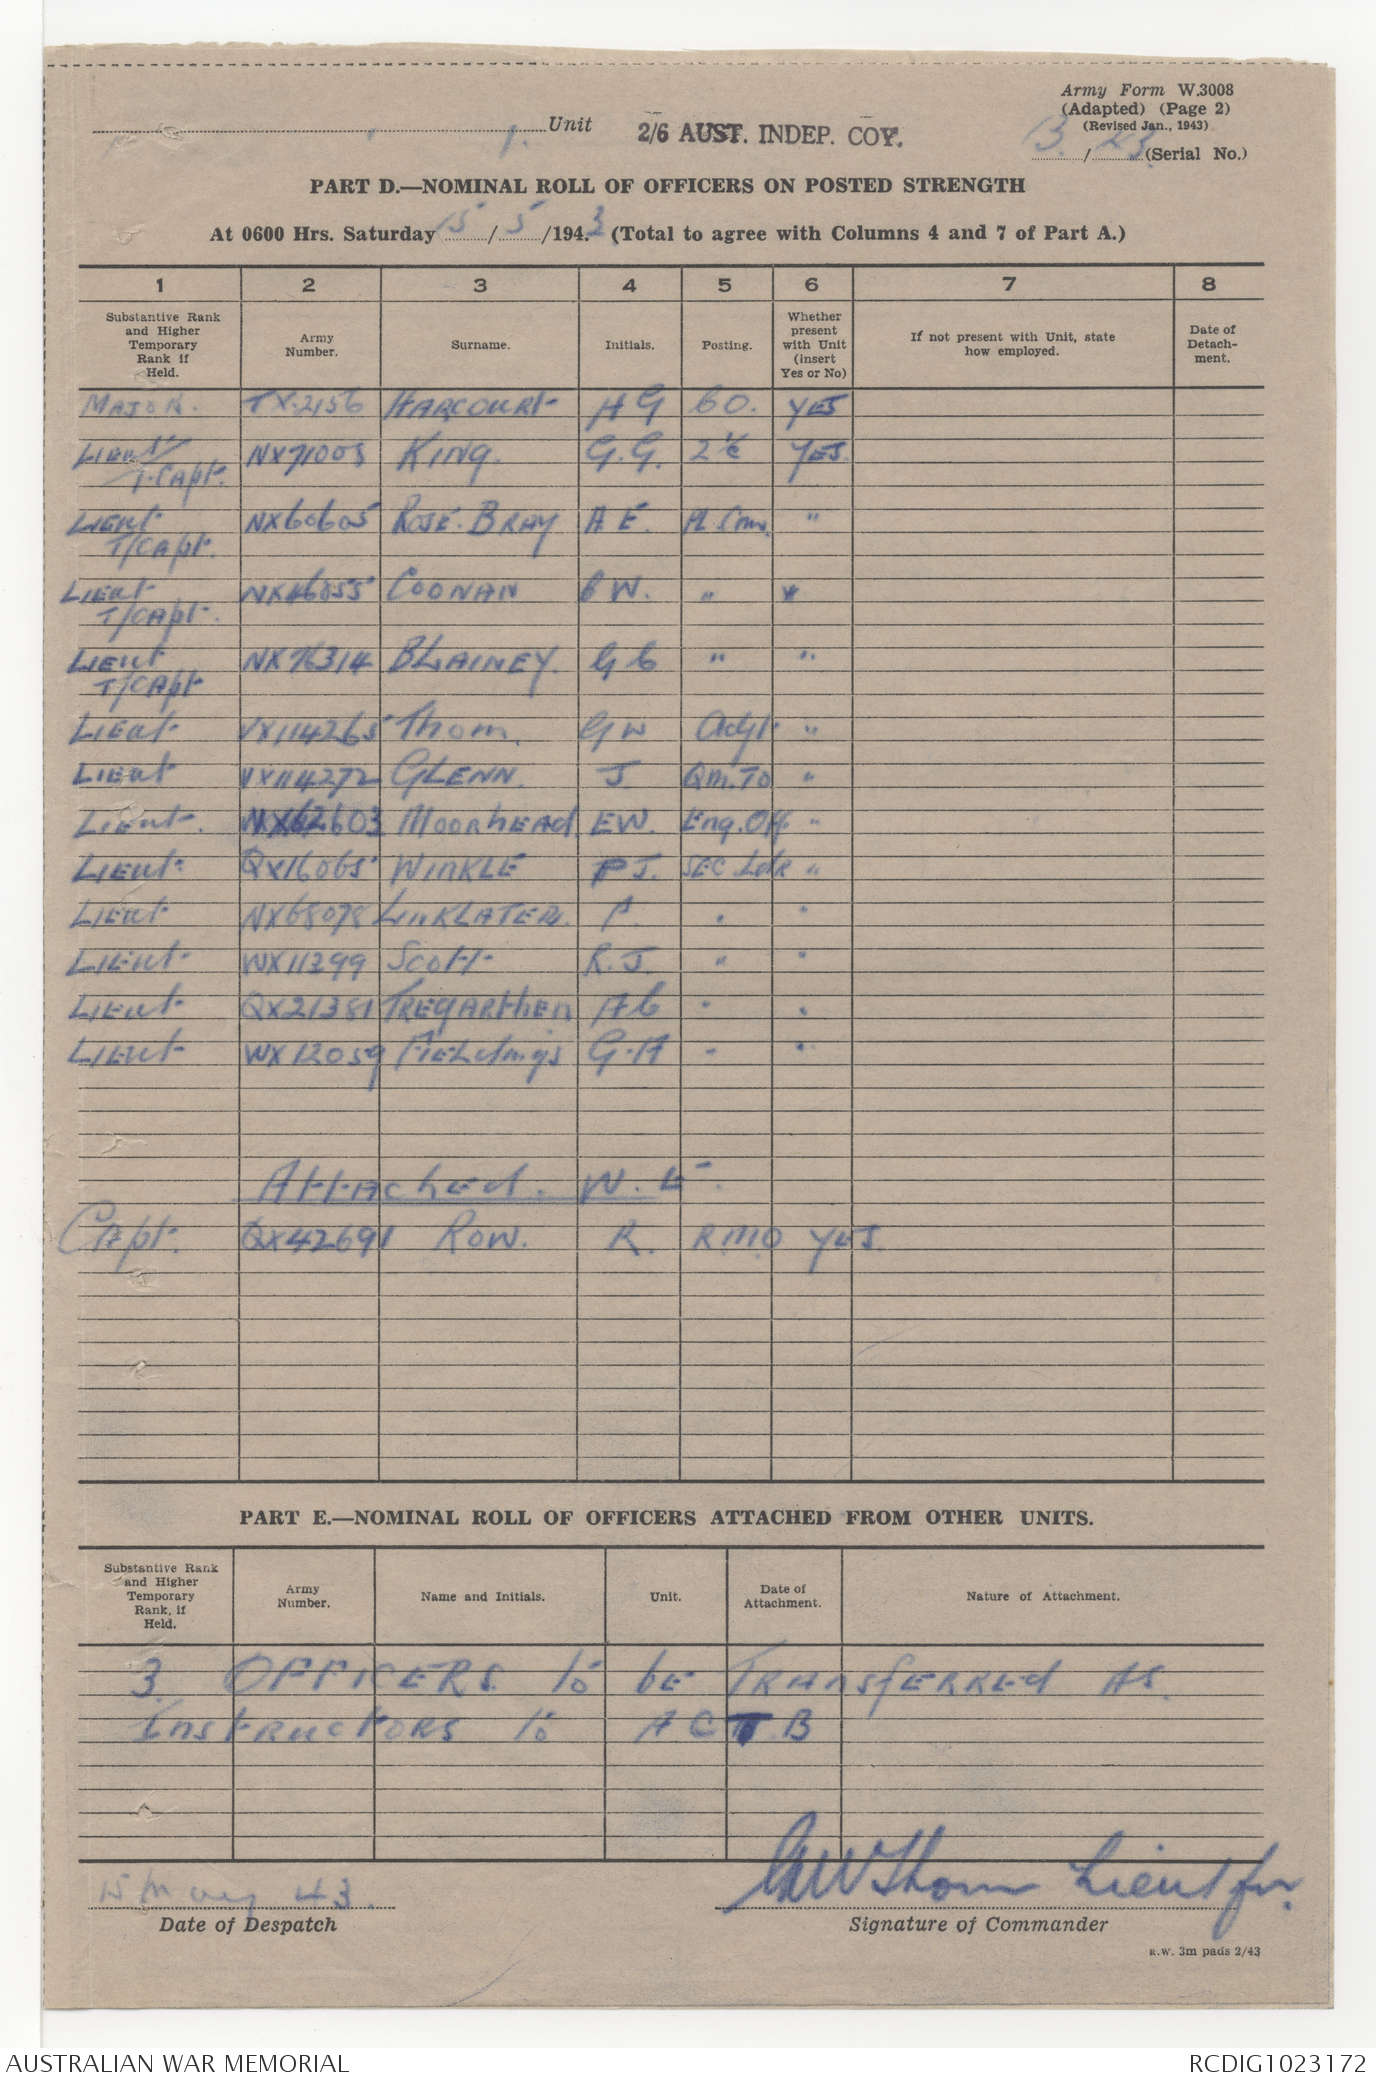 Army Form W.3008
(Adapted) (Page 2)
(Revised Jan., 1943)
Unit 2/6 AUST. INDEP. COY.
B / 43 (Serial No.)
PART D.—NOMINAL ROLL OF OFFICERS ON POSTED STRENGTH
At 0600 Hrs. Saturday 15 / 5 /1943 (Total to agree with Columns 4 and 7 of Part A.)
1 2 3 4 5 6 7 8
Substantive Rank and Higher Temporary Rank if Held. Army Number. Surname. Initials. Posting. Whether present with Unit (insert Yes or No) If not present with Unit, state how employed. Date of Detachment.
MAJOR. TX2156 HARCOURT HG CO. YES
Lieut/ NX71005 King. G.G. 2 i/c YES.
T.Capt.
Lieut NX60605 ROSE-BRAY A E. Pl Com. "
T/Capt.
Lieut COONAN B W. " "
T/Capt.
Lieut NX76314 BLAINEY. G C " "
T/Capt
Lieut VX114265 Thom. G W Adjt "
Lieut VX114272 GLENN. J. QM.TO "
Lieut. NX62603 Moorhead. EW. Eng.Off "
Lieut. QX16065 WINKLE P J. SEC. Ldr "
Lieut NX68078 LINKLATER. A. " "
Lieut WX11299 Scott R.J. " "
Lieut QX21381 TREGARTHEN A C " "
Lieut WX12059 G.A " "
Attached. W.E.
Capt. QX42691 ROW. R. R.M.O YES.
PART E.—NOMINAL ROLL OF OFFICERS ATTACHED FROM OTHER UNITS.
Substantive Rank and Higher Temporary Rank, if Held. Army Number. Name and Initials. Unit. Date of Attachment. Nature of Attachment.
3 OFFICERS to be TRANSFERRED AS.
INSTRUCTORS to A.C.T.B
15 May 43.
GWThom Lieut for.
Date of Despatch
Signature of Commander
R.W. 3m pads 2/43
AUSTRALIAN WAR MEMORIAL
RCDIG1023172